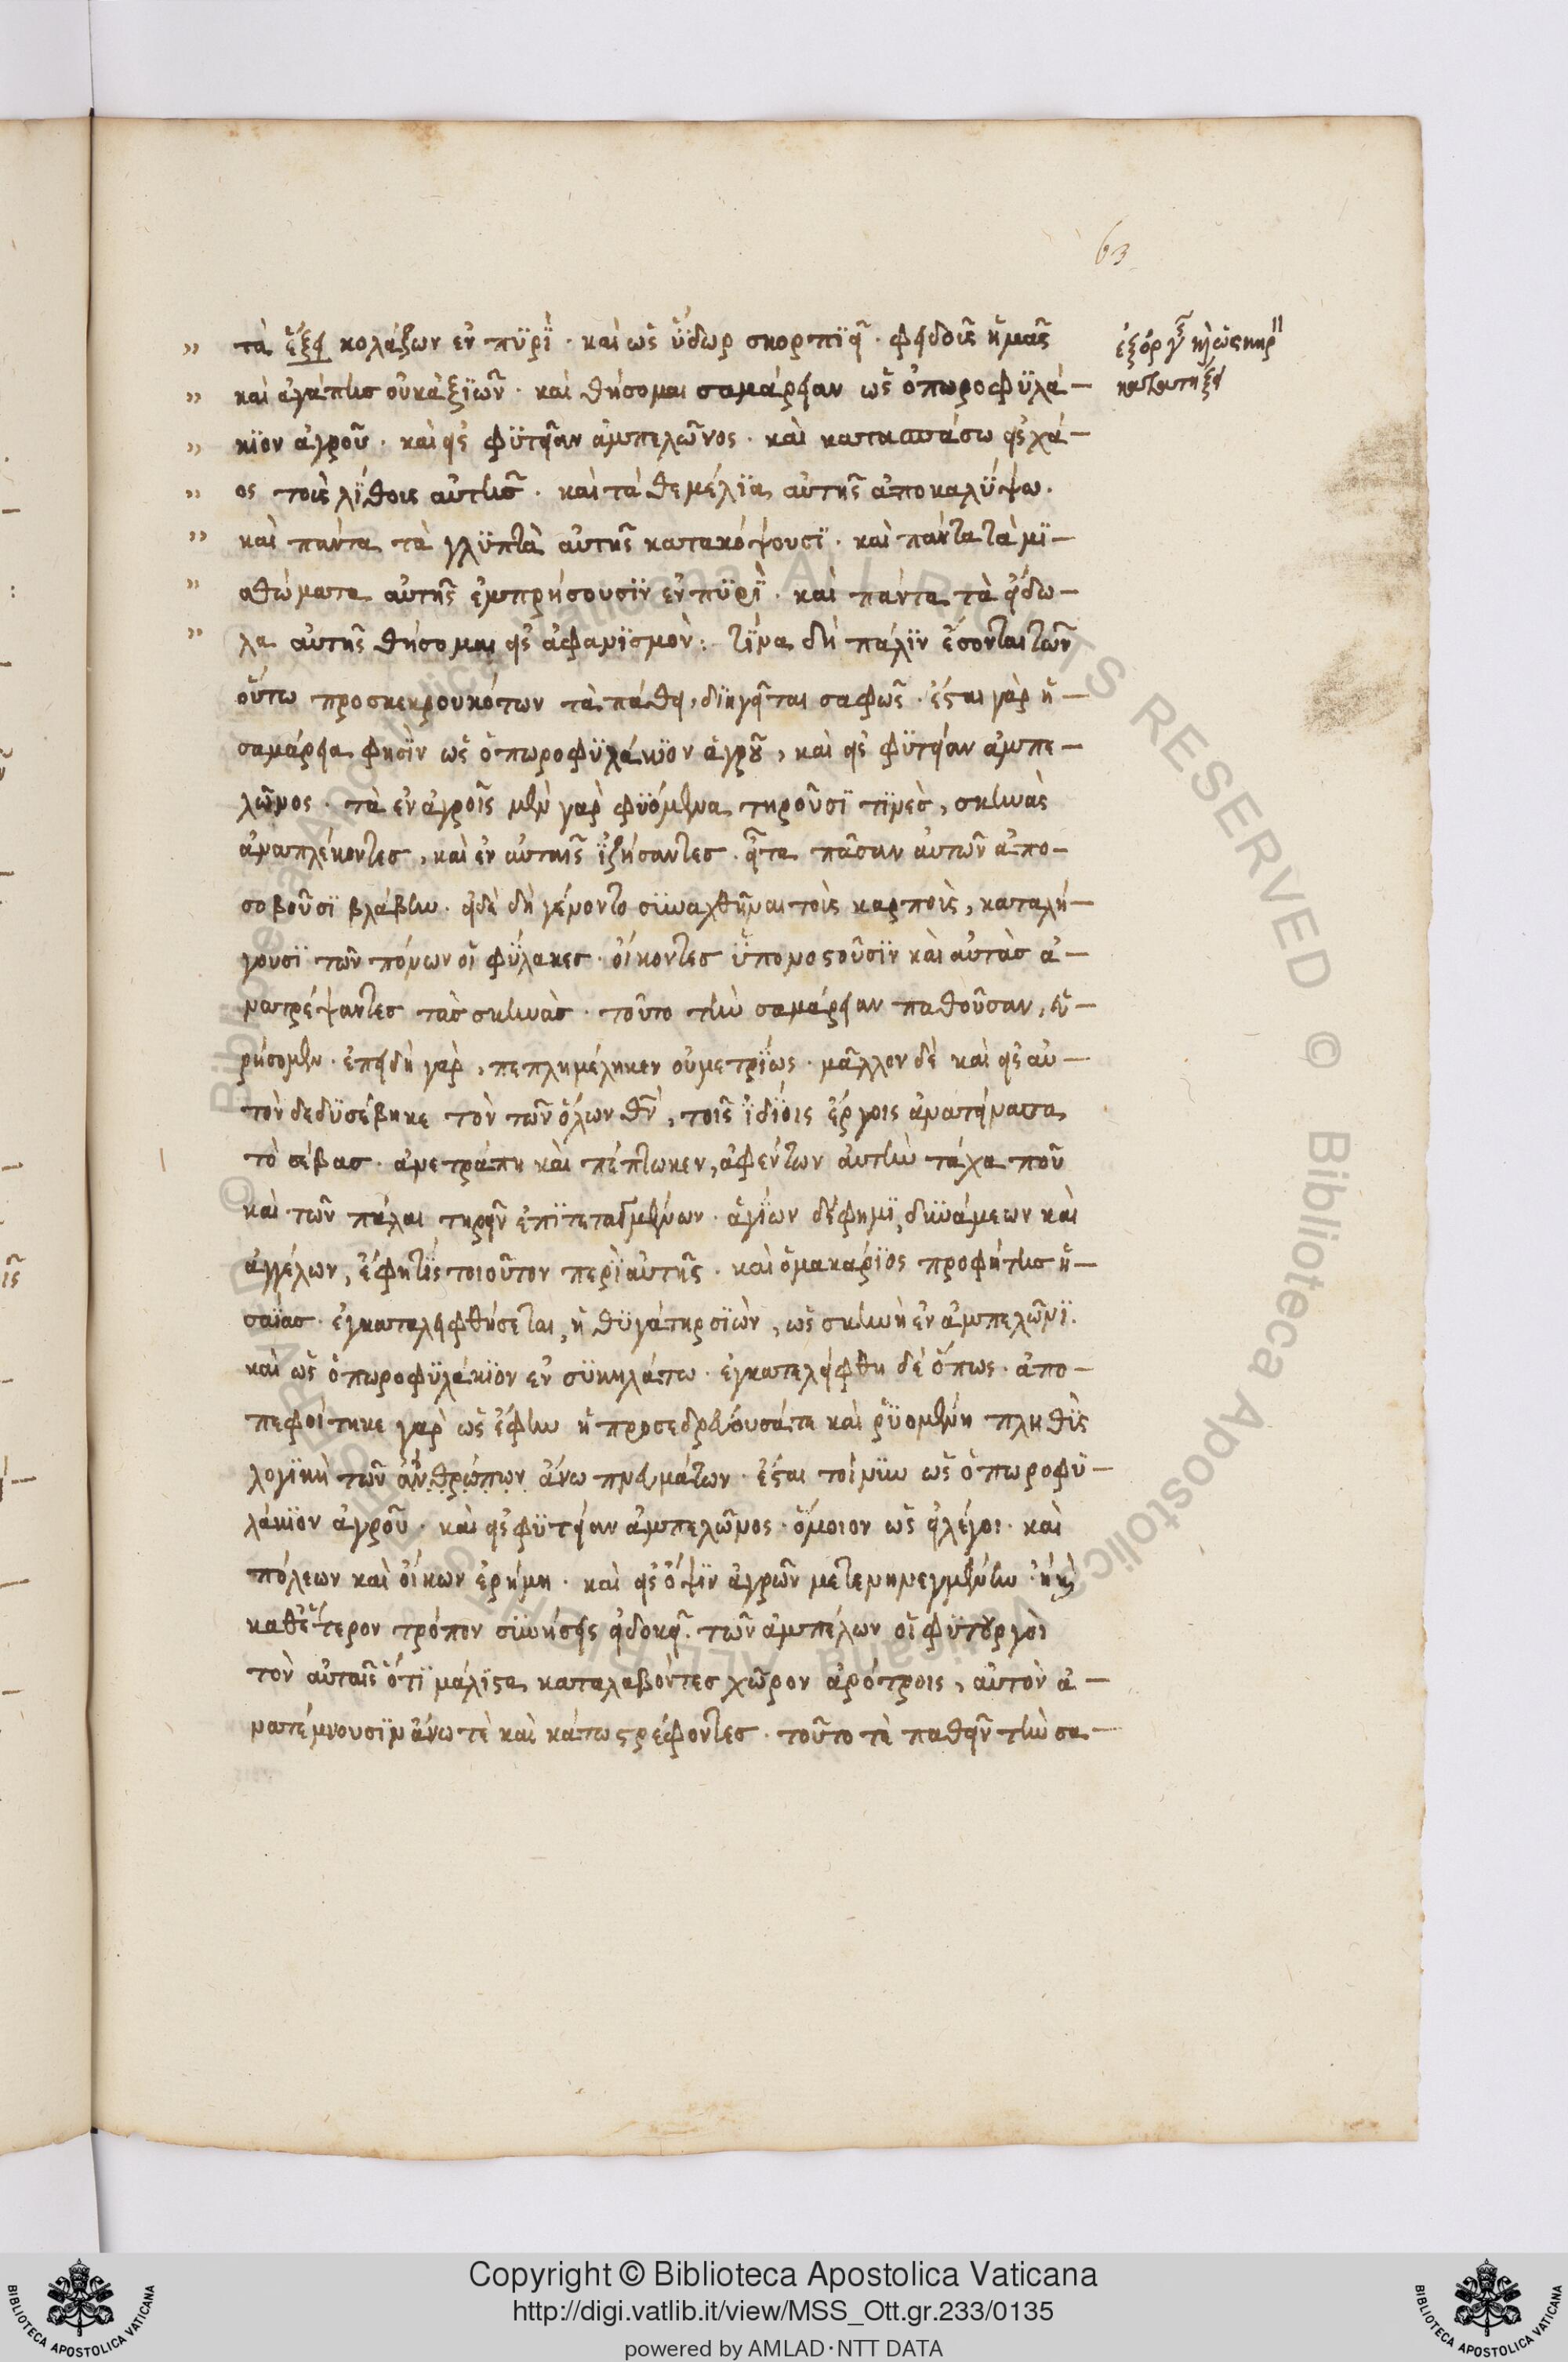 63
τὰ ἕξει κολάζων ἐν πϋρΐ · καὶ ὡς ὕδωρ σκορπϊεῖ · φειδοῖς ἡμᾶς
ἐξόρ
κατατηξει
καὶ ἀγάπης οὐκ ἀξϊῶν · καὶ θήσομαι σαμάρειαν ὡς ὀπωροφϋλά –
κϊον ἀγροῦ · καὶ εἰς φϋτείαν ἀμπελῶνος · καὶ κατασπάσω εἰς χά –
ος τοὺς λΐθους αὐτῆς · καὶ τὰ θεμέλϊα αὐτῆς ἀποκαλύψω ·
καὶ πάντα τὰ γλϋπτὰ αὐτῆς κατακόψουσϊ · καὶ πάντα τὰ μϊ –
σθώματα αὐτῆς ἐμπρήσουσϊν ἐν πϋρΐ · καὶ πάντα τὰ εἴδω –
λα αὐτῆς θήσομαι εἰς ἀφανϊσμὸν : τΐνα δὴ πάλϊν ἔσονται τῶν
οὕτω προσκεκρουκότων τὰ πάθη, διηγεῖται σαφῶς · ἔσται γὰρ ἡ –
σαμάρεια φησῒν ὡς ὀπωροφϋλάκϊον ἀγροῦ, καὶ εἰς φϋτείαν ἀμπε –
λῶνος · τὰ ἐν ἀγροῖς μὲν γὰρ φϋόμενα τηροῦσΐ τϊνες, σκηνὰς
ἀναπλέκοντες, καὶ ἐν αὐταῖς ἱζήσαντες · εἶτα πᾶσαν αὐτῶν ἀπο –
σοβοῦσϊ βλάβην · εἰ δὲ δὴ γένοντο σϋναχθῆναι τοὺς καρποὺς, καταλή –
γουσϊ τῶν πόνων οἱ φύλακες · οἴκοντες ὑπονοστοῦσϊν καὶ αὐτὰς ἀ –
νατρέψαντες τὰς σκηνὰς · τοῦτο τὴν σαμάρειαν παθοῦσαν, εὑ –
ρήσομεν · ἐπειδὴ γὰρ, πεπλημέληκεν οὐ μετρΐως · μᾶλλον δὲ καὶ εἰς αὐ –
τὸν δεδϋσέβηκε τὸν τῶν ὅλων θν̄, τοῖς ἰδίοις ἔργοις ἀνατείνασα
τὸ σέβας · ἀνετράπη καὶ πέπτωκεν, ἀφέντων αὐτὴν τάχα ποῦ
καὶ τῶν πάλαι τηρεῖν ἐπϊτεταγμένων · ἁγΐων δέ φημϊ, δϋνάμεων καὶ
ἀγγέλων, ἔφη τῒς τοιοῦτον περὶ αὐτῆς · καὶ ὁ μακάρϊος προφήτης ἡ –
σαΐας · ἐγκαταλειφθήσεται, ἡ θϋγάτηρ σϊὼν, ὡς σκηνὴ ἐν ἀμπελῶνϊ ·
καὶ ὡς ὀπωροφϋλάκϊον ἐν σϋκηλάτω · ἐγκατελείφθη δὲ ὅπως · ἀπο –
πεφοίτηκε γὰρ ὡς ἔφην ἡ προσεδρεύουσά τε καὶ ῥϋομένη πληθῒς
λογϊκὴ τῶν ἀνθρώπων ἄνω πνευμάτων · ἔσται τοίνϋν ὡς ὀπωροφϋ –
λάκϊον ἀγροῦ · καὶ εἰς φϋτείαν ἀμπελῶνος · ὅμοιον ὡς εἰ λέγοι · καὶ
πόλεων καὶ οἴκων ἐρήμη · καὶ εἰς ὄψϊν ἀγρῶν μετενηνεγμένην · ἢ καὶ
καθ' ἕτερον τρόπον σϋνήσεις εἰ δοκεῖ · τῶν ἀμπέλων οἱ φϋτουργοὶ
τὸν αὐταῖς ὅτϊ μάλϊστα καταλαβόντες χῶρον ἀρότροις, αὐτὸν ἀ –
νατέμνουσϊν ἄνω τὲ καὶ κάτω στρέφοντες · τοῦτο τὲ παθεῖν τὴν σα –
Copyright © Biblioteca Apostolica Vaticana
http://digi.vatlib.it/view/MSS_Ott.gr.233/0135
powered by AMLAD·NTT DATA